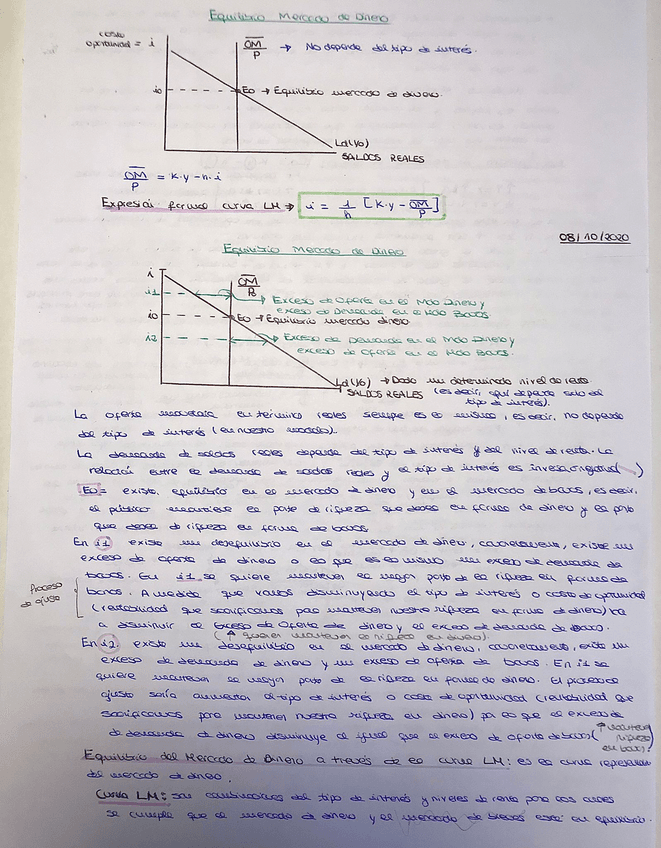 Equilibrio Mercado de Dinero
coste
oportunidad = i
OM/P → No depende del tipo de interés.
io
Eo → Equilibrio mercado de dinero.
Ld(Yo)
SALDOS REALES
OM/P = K·y - h·i
Expresión formal curva LM → i = 1/h [K·y - OM/P]
08/10/2020
Equilibrio Mercado de Dinero
i
OM/P
i1
Exceso de Oferta en el Mdo Dinero y
exceso de Demanda en el Mdo Bonos.
io
Eo → Equilibrio mercado dinero
i2
Exceso de Demanda en el Mdo Dinero y
exceso de Oferta en el Mdo Bonos.
Ld(Yo) → Dado un determinado nivel de renta
SALDOS REALES (es decir, aquí depende solo del
tipo de interés).
La oferta monetaria en términos reales siempre es la misma, es decir, no depende
del tipo de interés (en nuestro modelo).
La demanda de saldos reales depende del tipo de interés y del nivel de renta. La
relación entre la demanda de saldos reales y el tipo de interés es inversa, negativa
Eo = existe equilibrio en el mercado de dinero y en el mercado de bonos, es decir,
el público mantiene la parte de riqueza que desea en forma de dinero y la parte
que desea de riqueza en forma de bonos.
En i1 existe un desequilibrio en el mercado de dinero, concretamente, existe un
exceso de oferta de dinero o lo que es lo mismo un exceso de demanda de
bonos. En i1 se quiere mantener la mayor parte de la riqueza en forma de
bonos. A medida que vamos disminuyendo el tipo de interés o costo de oportunidad
Proceso
de ajuste
(rentabilidad que sacrificamos para mantener nuestra riqueza en forma de dinero) va
a disminuir el exceso de Oferta de dinero y el exceso de demanda de Bonos.
(↑ quieren mantener la riqueza en dinero).
En i2 existe un desequilibrio en el mercado de dinero, concretamente, existe un
exceso de demanda de dinero y un exceso de oferta de bonos. En i1 se
quiere mantener la mayor parte de la riqueza en forma de dinero. El proceso de
ajuste sería aumentar el tipo de interés o costo de oportunidad (rentabilidad que
sacrificamos para mantener nuestra riqueza en dinero) por lo que el exceso de
de demanda de dinero disminuye al igual que el exceso de oferta de bonos (↑ mantener
riqueza
en bonos)
Equilibrio del Mercado de Dinero a través de la curva LM: es la curva representativa
del mercado de dinero.
Curva LM: son combinaciones del tipo de interés y niveles de renta para los cuales
se cumple que el mercado de dinero y el mercado de bienes están en equilibrio.